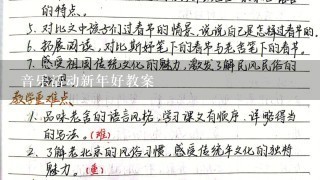 的特点。
5. 对比文中孩子们过春节的情景,说说自己是怎样过春节的。
6. 拓展阅读,对比斯妤笔下的春节与老舍笔下的春节。
7. 感受祖国传统文化的魅力,激发了解民风民俗的
音乐活动新年好教案
教学重难点
1. 品味老舍的语言风格,学习课文有顺序、详略得当
的写法。(难)
2. 了解老北京的风俗习惯,感受传统年文化的独特
魅力。(重)